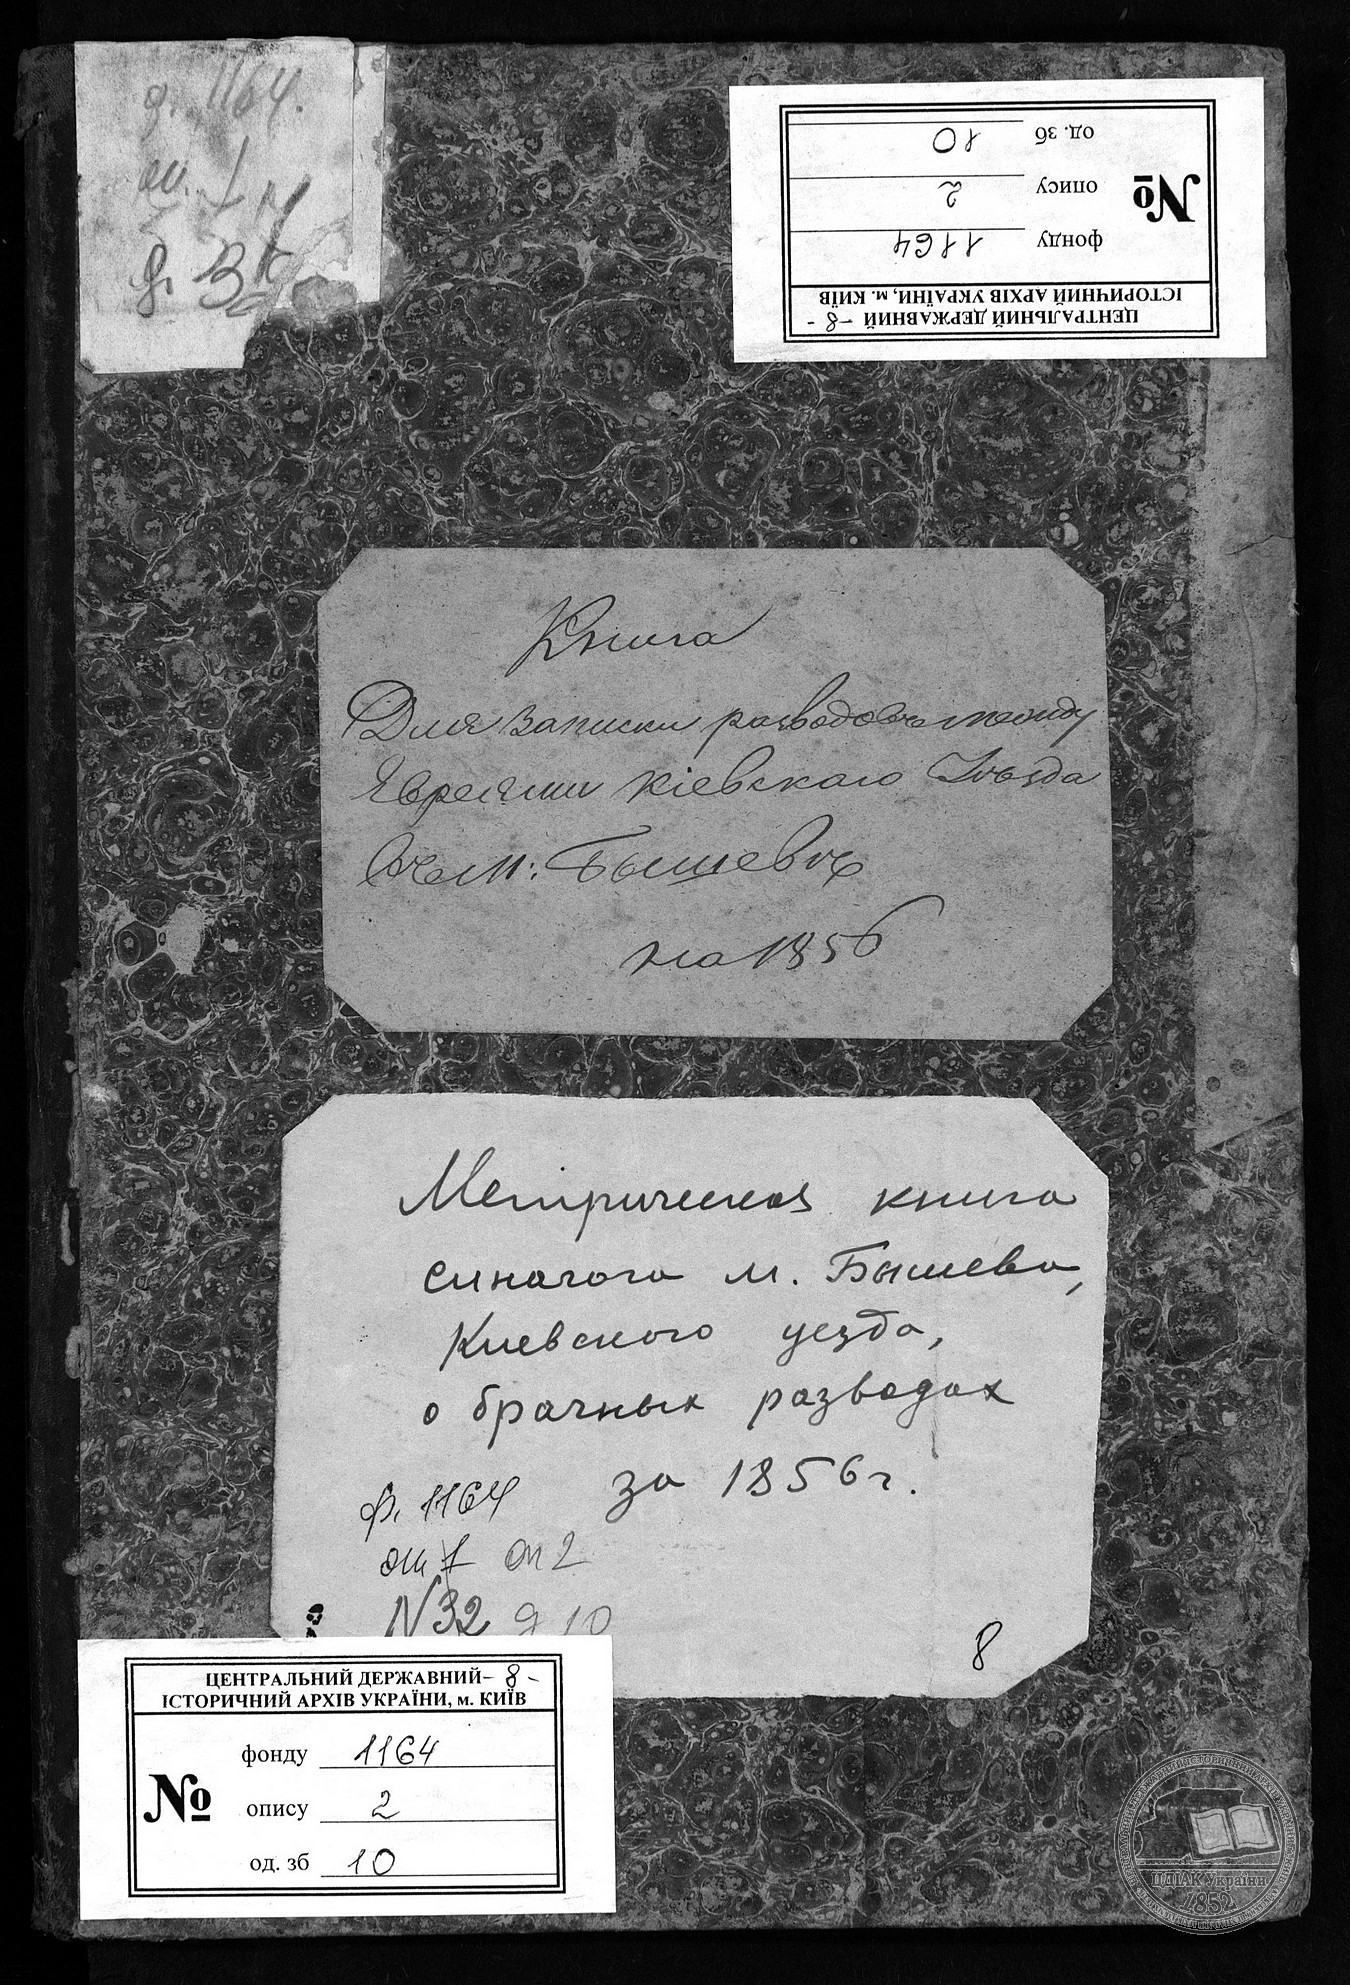 д. 1164.
оп. 1
од. зб 10
опису 2
№
фонду 1164
ІСТОРИЧНИЙ АРХІВ УКРАЇНИ, м. КИЇВ
ЦЕНТРАЛЬНИЙ ДЕРЖАВНИЙ -8-
Книга
Для записки разводовъ между
Евреями Кіевскаго Уѣзда
Въ м: Бышевѣ
на 1856
Метрическая книга
синагога м. Бышева,
Киевского уезда,
о брачных разводах
за 1856 г.
ф. 1164
оп 1 оп 2
N 32 д 10
8
ЦЕНТРАЛЬНИЙ ДЕРЖАВНИЙ -8-
ІСТОРИЧНИЙ АРХІВ УКРАЇНИ, м. КИЇВ
фонду 1164
№ опису 2
од. зб 10
ЦДІАК України
1852